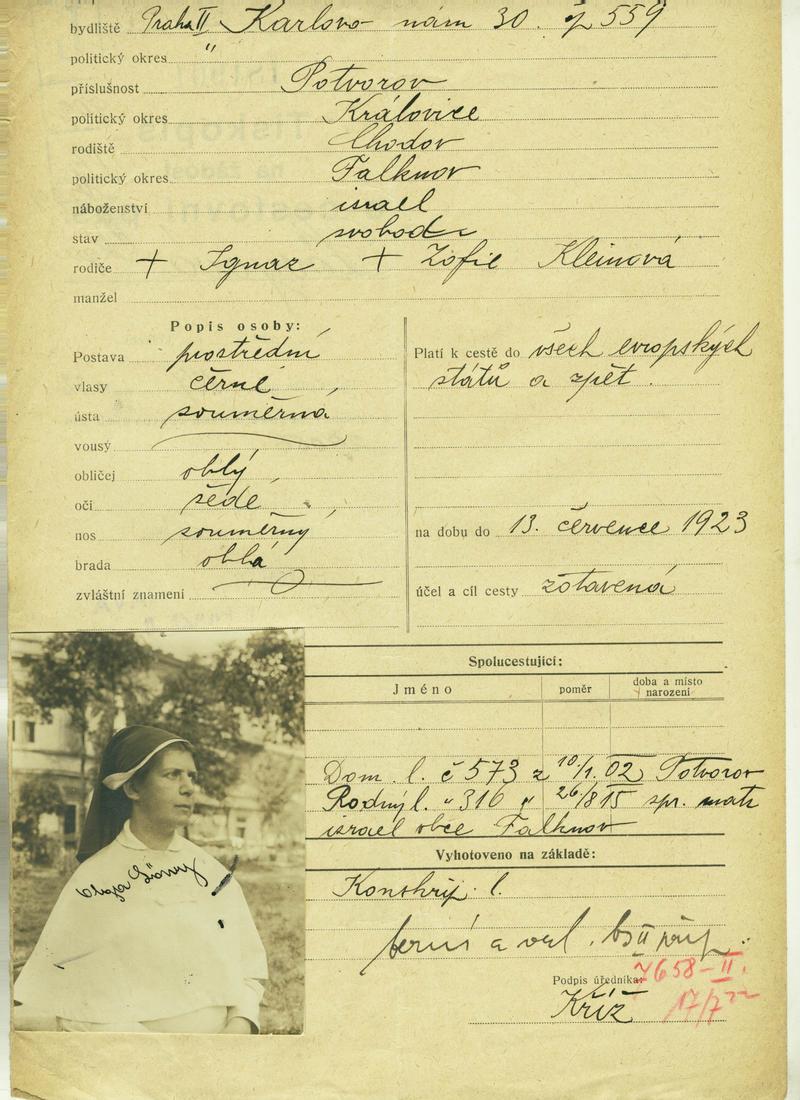 bydliště Praha II Karlovo nám 30. čp 559
politický okres "
příslušnost Potvorov
politický okres Královice
rodiště Chodov
politický okres Falknov
náboženství israel
stav svobod
rodiče + Ignaz + Žofie Kleinová
manžel
Popis osoby:
Postava prostřední
vlasy černé
ústa souměrná
vousy
obličej oblý
oči šedé
nos souměrný
brada oblá
zvláštní znamení
Platí k cestě do všech evropských
států a zpět.
na dobu do 13. července 1923
účel a cíl cesty zotavená
Spolucestující:
Jméno poměr doba a místo narození
Dom. l. č 573 z 10/1. 02 Potvorov
Rodný l. " 316 " 26/8 15 spr. matr
israel obce Falknov
Vyhotoveno na základě:
Konskrip. l.
Podpis úředníka:
Kříž
7658-II.
17/7 22
Olga